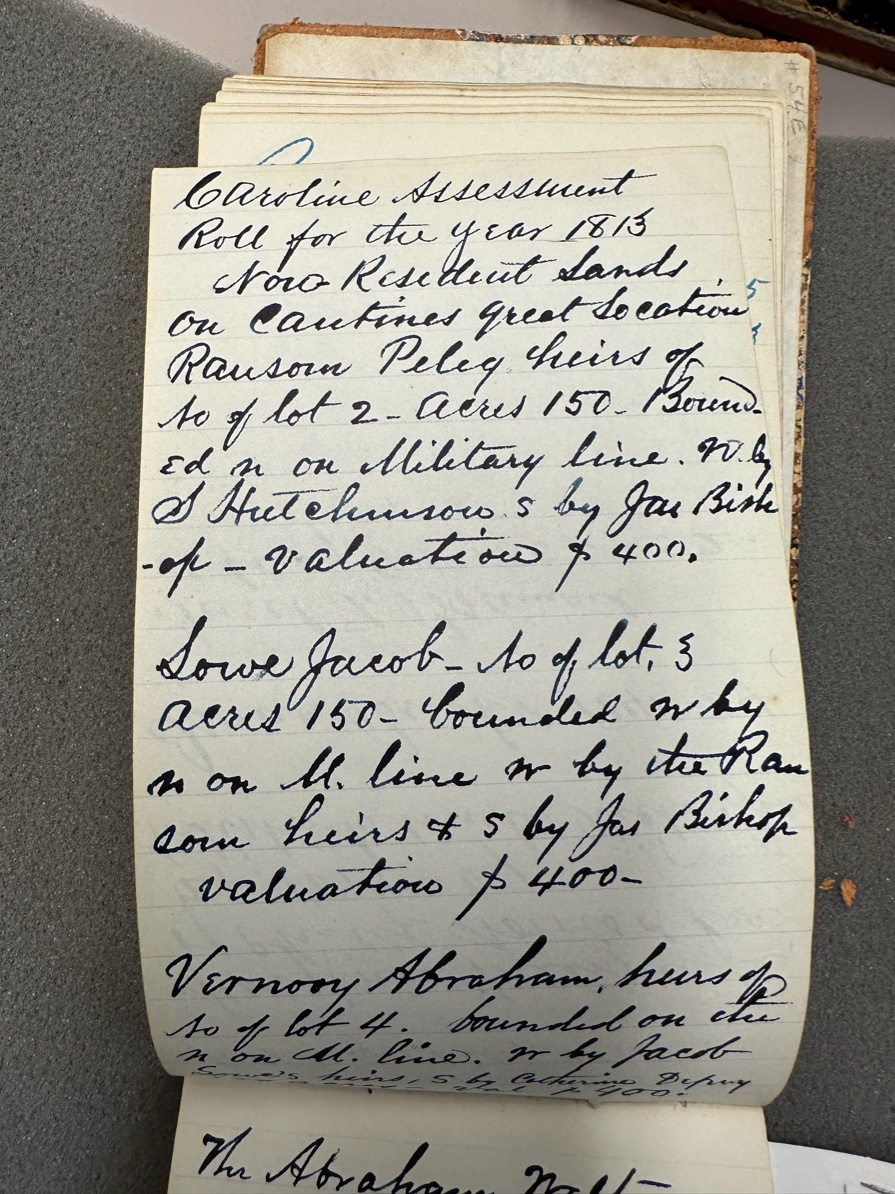 Caroline Assessment
Roll for the year 1813
Non Resident Lands
on Cantines Great Location
Ransom Peleg heirs of
No of lot 2 - Acres 150 - Bound-
Ed n on Military line. W. by
S Hutchinson S by Jas Bish
-op - Valuation $ 400.
Lowe Jacob - No of lot, 3
Acres 150 - bounded w by
n on M. line w by the Ran
som heirs & S by Jas Bishop
valuation $ 400 -
Vernooy Abraham, heirs of
No of lot 4. bounded on the
n on M. line. w by Jacob
Lowe's heirs, S by Catherine Depuy
Val $ 400.
Abraham
# 54E